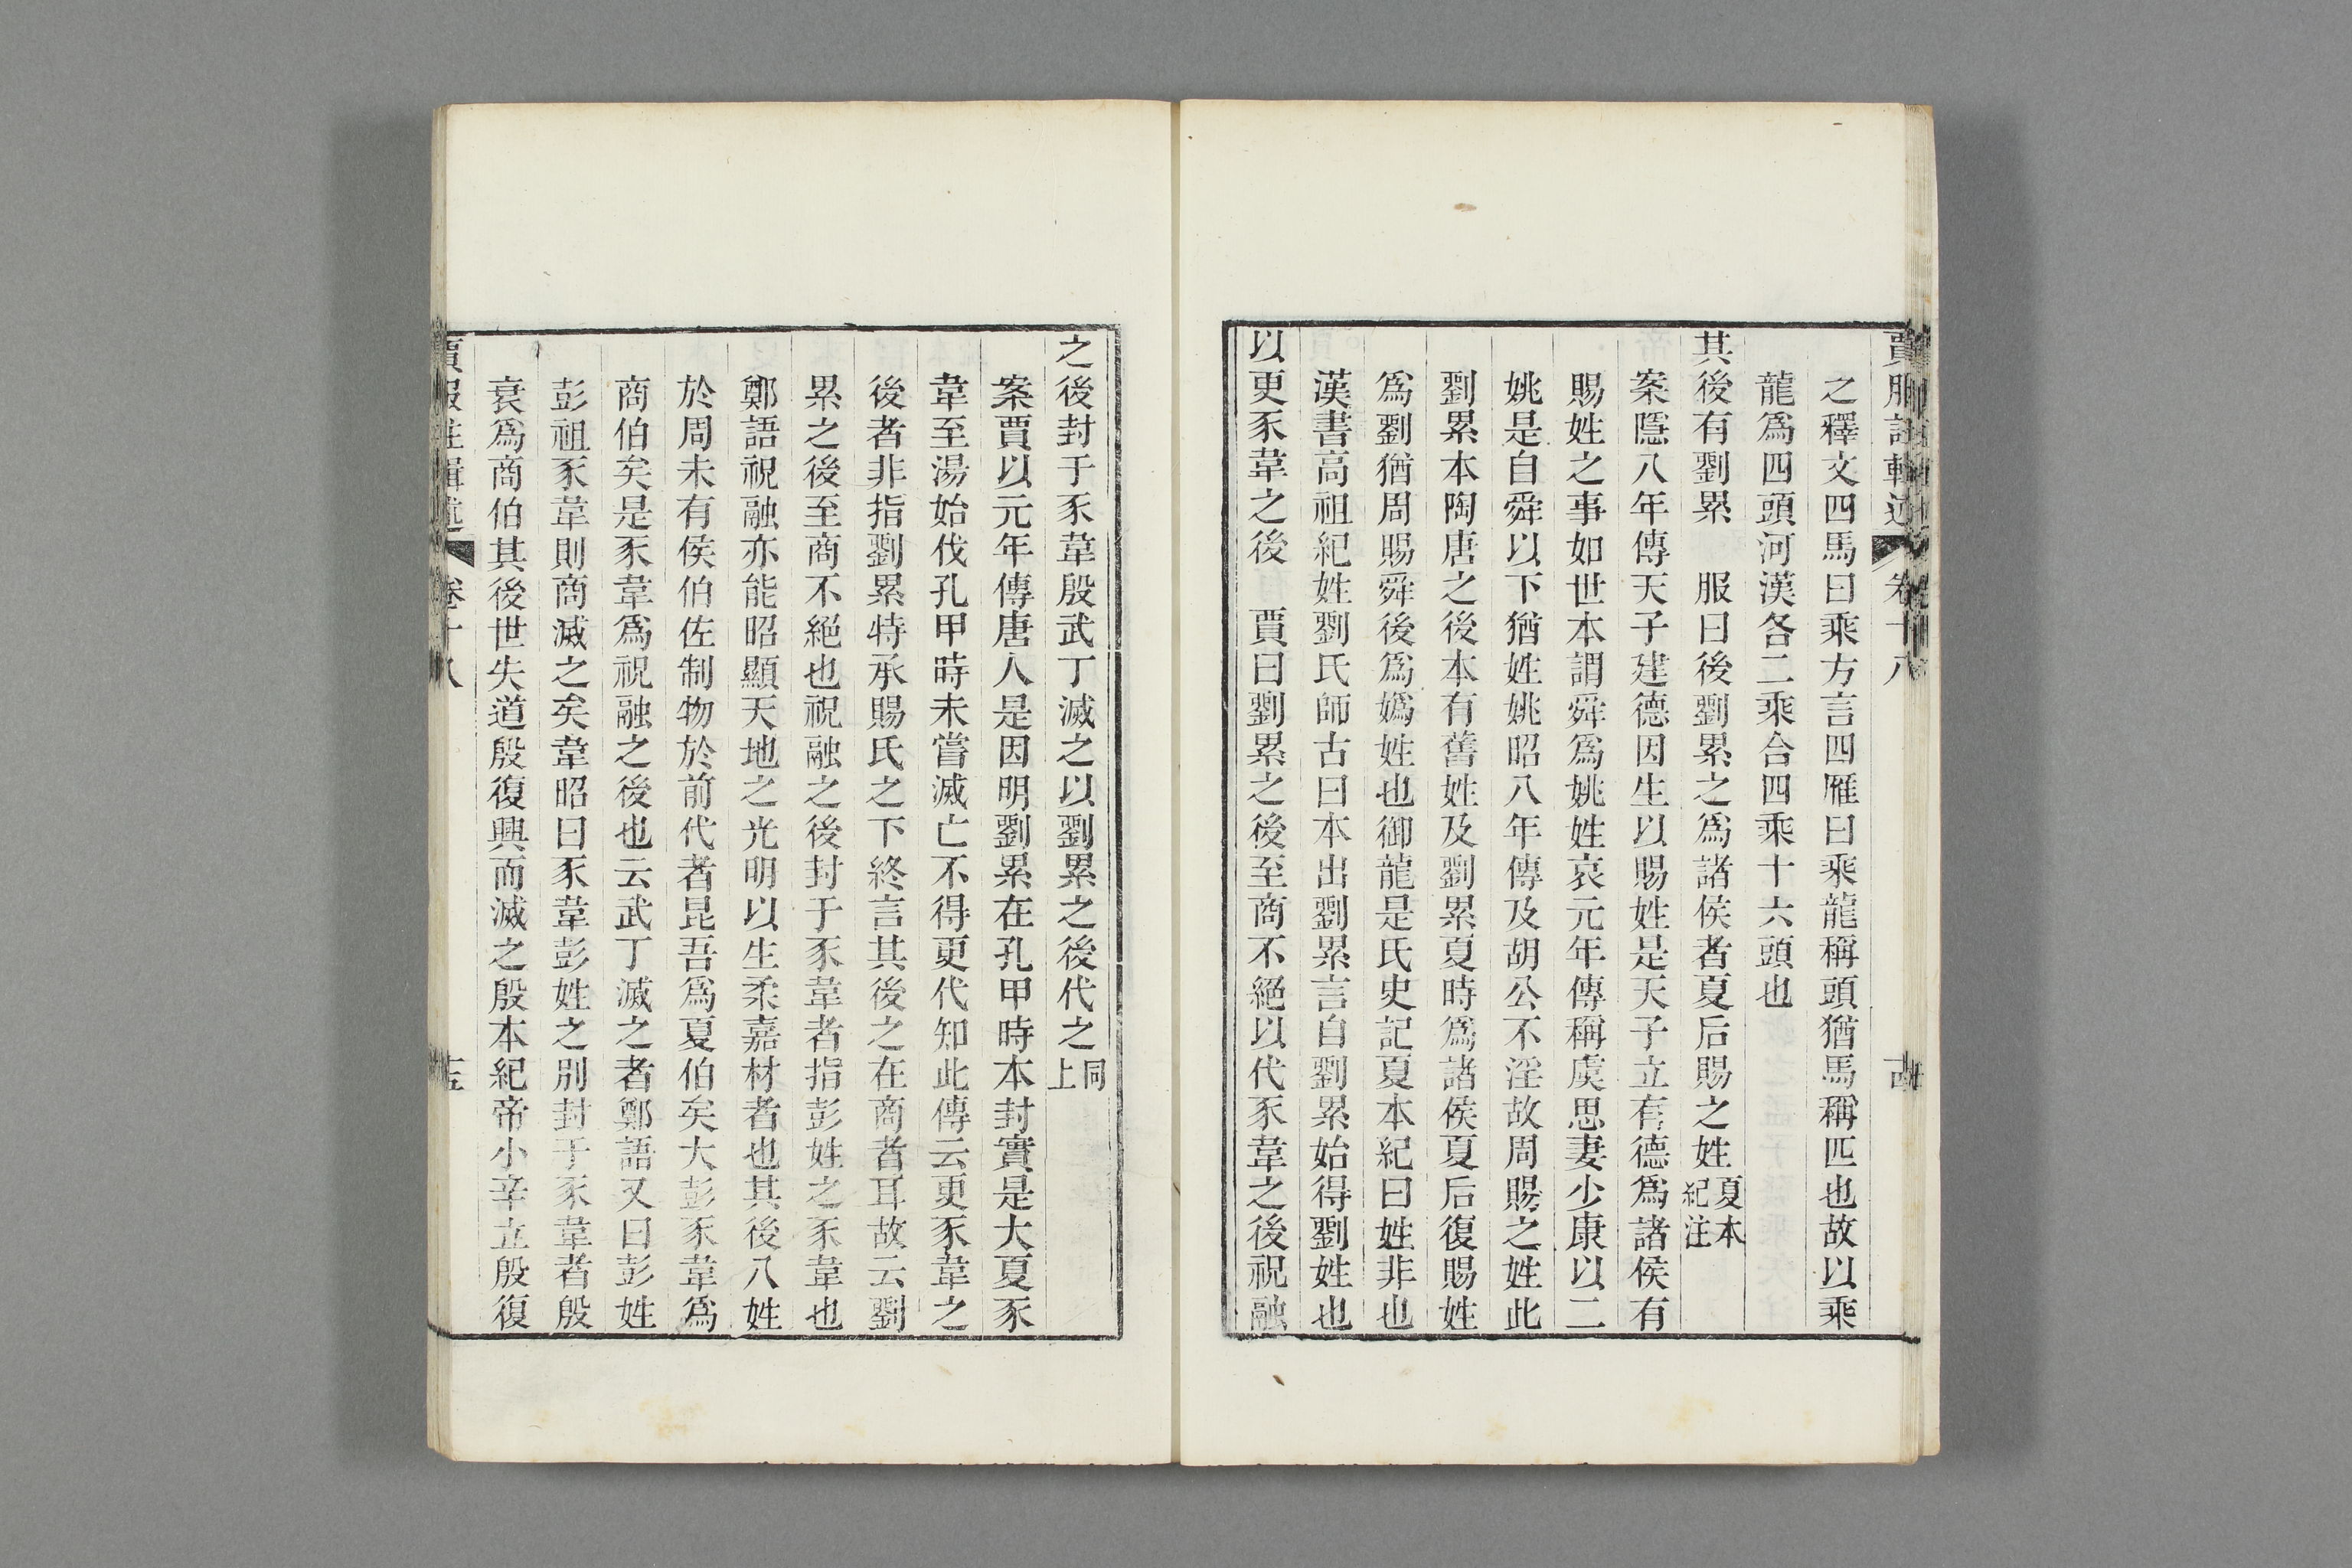 賈服註輯述 卷十八
之釋文四馬曰乘方言四雁曰乘龍稱頭猶馬稱匹也故以乘
龍爲四頭河漢各二乘合四乘十六頭也
其後有劉累 服曰後劉累之爲諸侯者夏后賜之姓夏本紀注
案隱八年傳天子建德因生以賜姓是天子立有德爲諸侯有
賜姓之事如世本謂舜爲姚姓哀元年傳稱虞思妻少康以二
姚是自舜以下猶姓姚昭八年傳及胡公不淫故周賜之姓此
劉累本陶唐之後本有舊姓及劉累夏時爲諸侯夏后復賜姓
爲劉猶周賜舜後爲嬀姓也御龍是氏史記夏本紀曰姓非也
漢書高祖紀姓劉氏師古曰本出劉累言自劉累始得劉姓也
以更豕韋之後 賈曰劉累之後至商不絕以代豕韋之後祝融
之後封于豕韋殷武丁滅之以劉累之後代之同上
案賈以元年傳唐人是因明劉累在孔甲時本封實是大夏豕
韋至湯始伐孔甲時未嘗滅亡不得更代知此傳云更豕韋之
後者非指劉累特承賜氏之下終言其後之在商者耳故云劉
累之後至商不絕也祝融之後封于豕韋者指彭姓之豕韋也
鄭語祝融亦能昭顯天地之光明以生柔嘉材者也其後八姓
於周未有侯伯佐制物於前代者昆吾爲夏伯矣大彭豕韋爲
商伯矣是豕韋爲祝融之後也云武丁滅之者鄭語又曰彭姓
彭祖豕韋則商滅之矣韋昭曰豕韋彭姓之別封于豕韋者殷
衰爲商伯其後世失道殷復興而滅之殷本紀帝小辛立殷復
賈服註輯述 卷十八